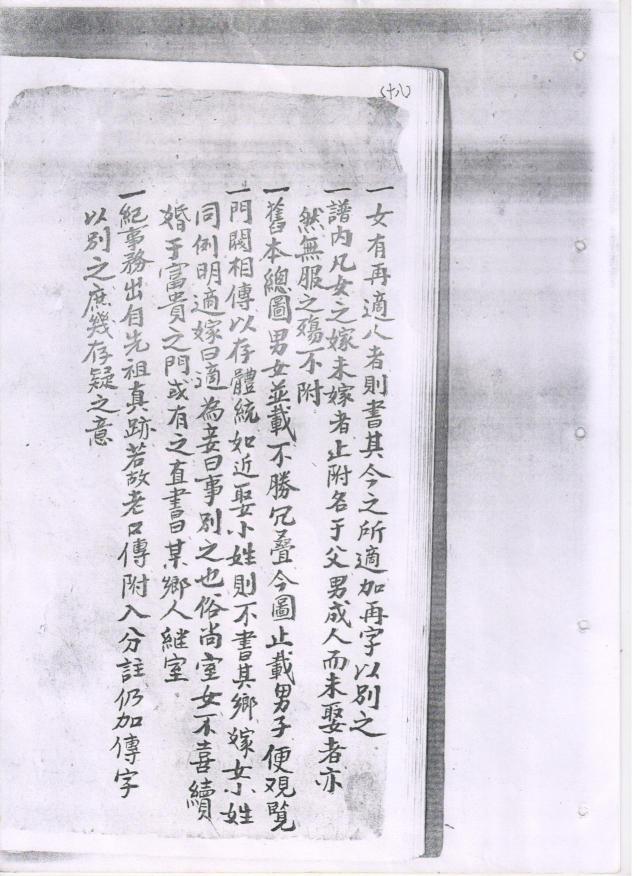 (十八)
一女有再適人者則書其今之所適加再字以別之
一譜內凡女之嫁未嫁者止附名于父男成人而未娶者亦
然無服之殤不附
一舊本總圖男女並載不勝冗疊今圖止載男子便观覽
一門閥相傳以存體統如近娶小姓則不書其鄉嫁女小姓
同例明適嫁曰適為妾曰事別之也俗尚室女不喜續
婚于富貴之門或有之直書曰某鄉人継室
一紀事務出自先祖真跡若故老口傳附入分註仍加傳字
以別之庶幾存疑之意